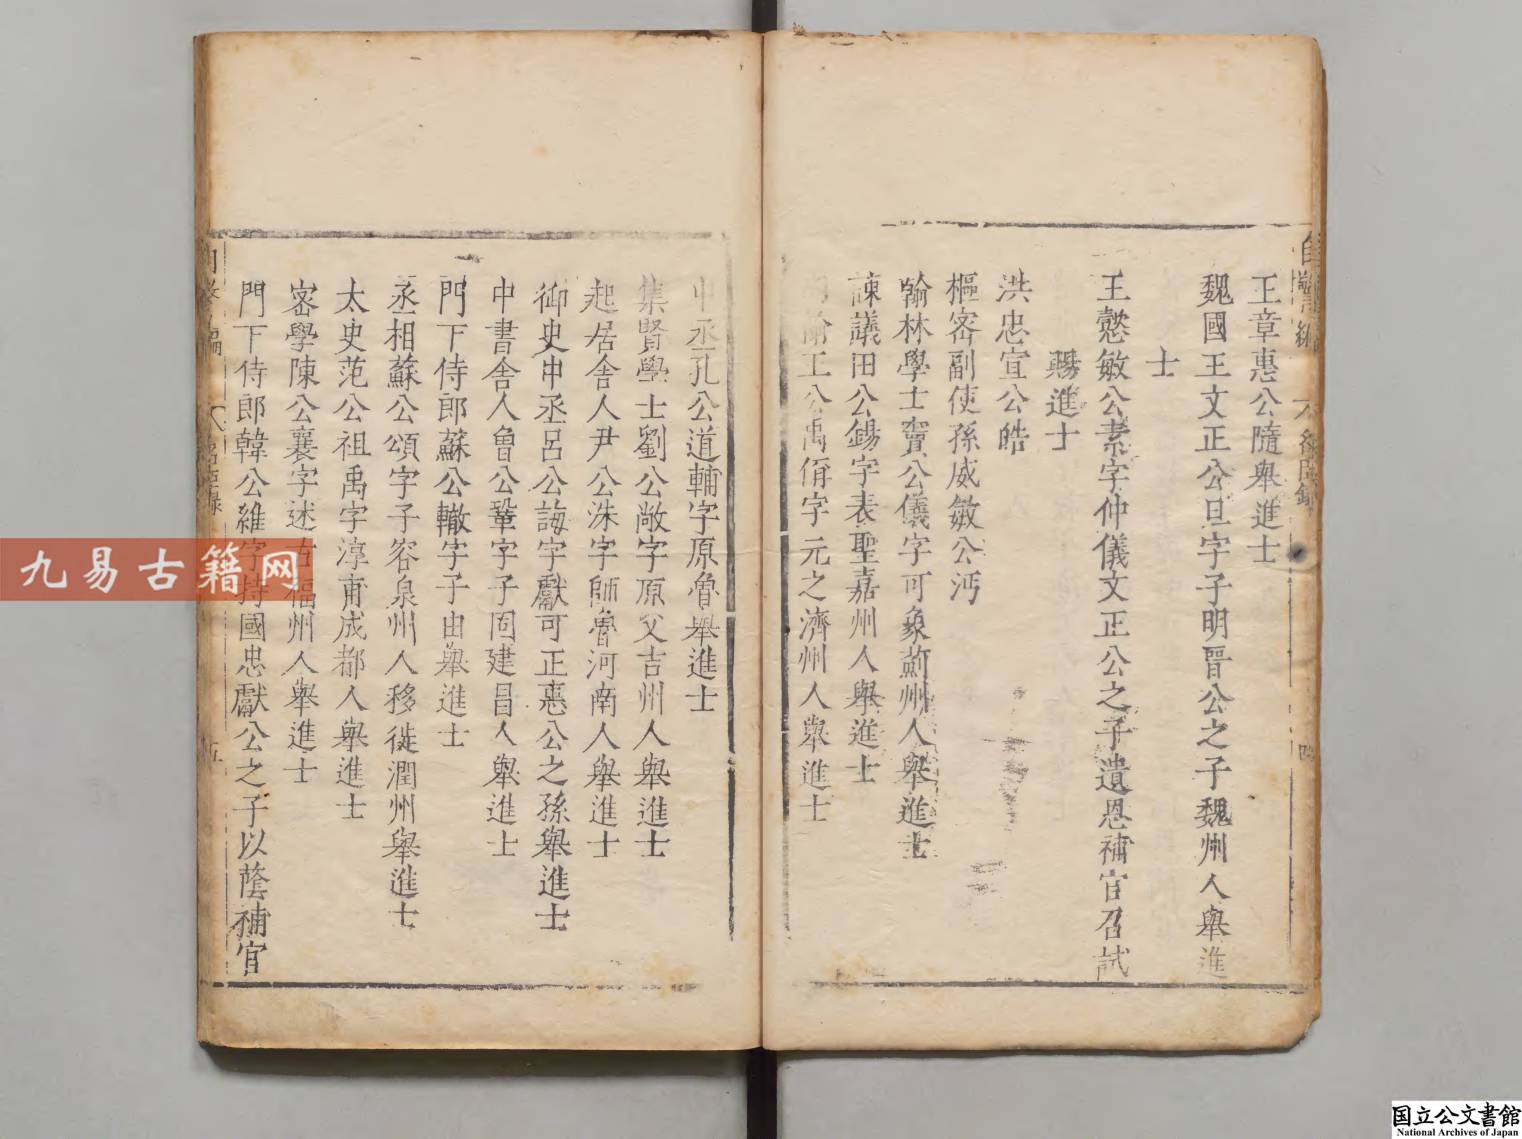 王章惠公隨舉進士
魏國王文正公旦字子明晉公之子魏州人舉進
士
王懿敏公素字仲儀文正公之子遺恩補官召試
賜進士
洪忠宣公皓
樞密副使孫威敏公沔
翰林學士竇公儀字可象薊州人舉進士
諫議田公錫字表聖嘉州人舉進士
內翰王公禹偁字元之濟州人舉進士
中丞孔公道輔字原魯舉進士
集賢學士劉公敞字原父吉州人舉進士
起居舍人尹公洙字師魯河南人舉進士
御史中丞呂公誨字獻可正惠公之孫舉進士
中書舍人曾公鞏字子固建昌人舉進士
門下侍郎蘇公轍字子由舉進士
丞相蘇公頌字子容泉州人移徙潤州舉進士
太史范公祖禹字淳甫成都人舉進士
密學陳公襄字述古福州人舉進士
門下侍郎韓公維字持國忠獻公之子以蔭補官
九易古籍网
国立公文書館
National Archives of Japan